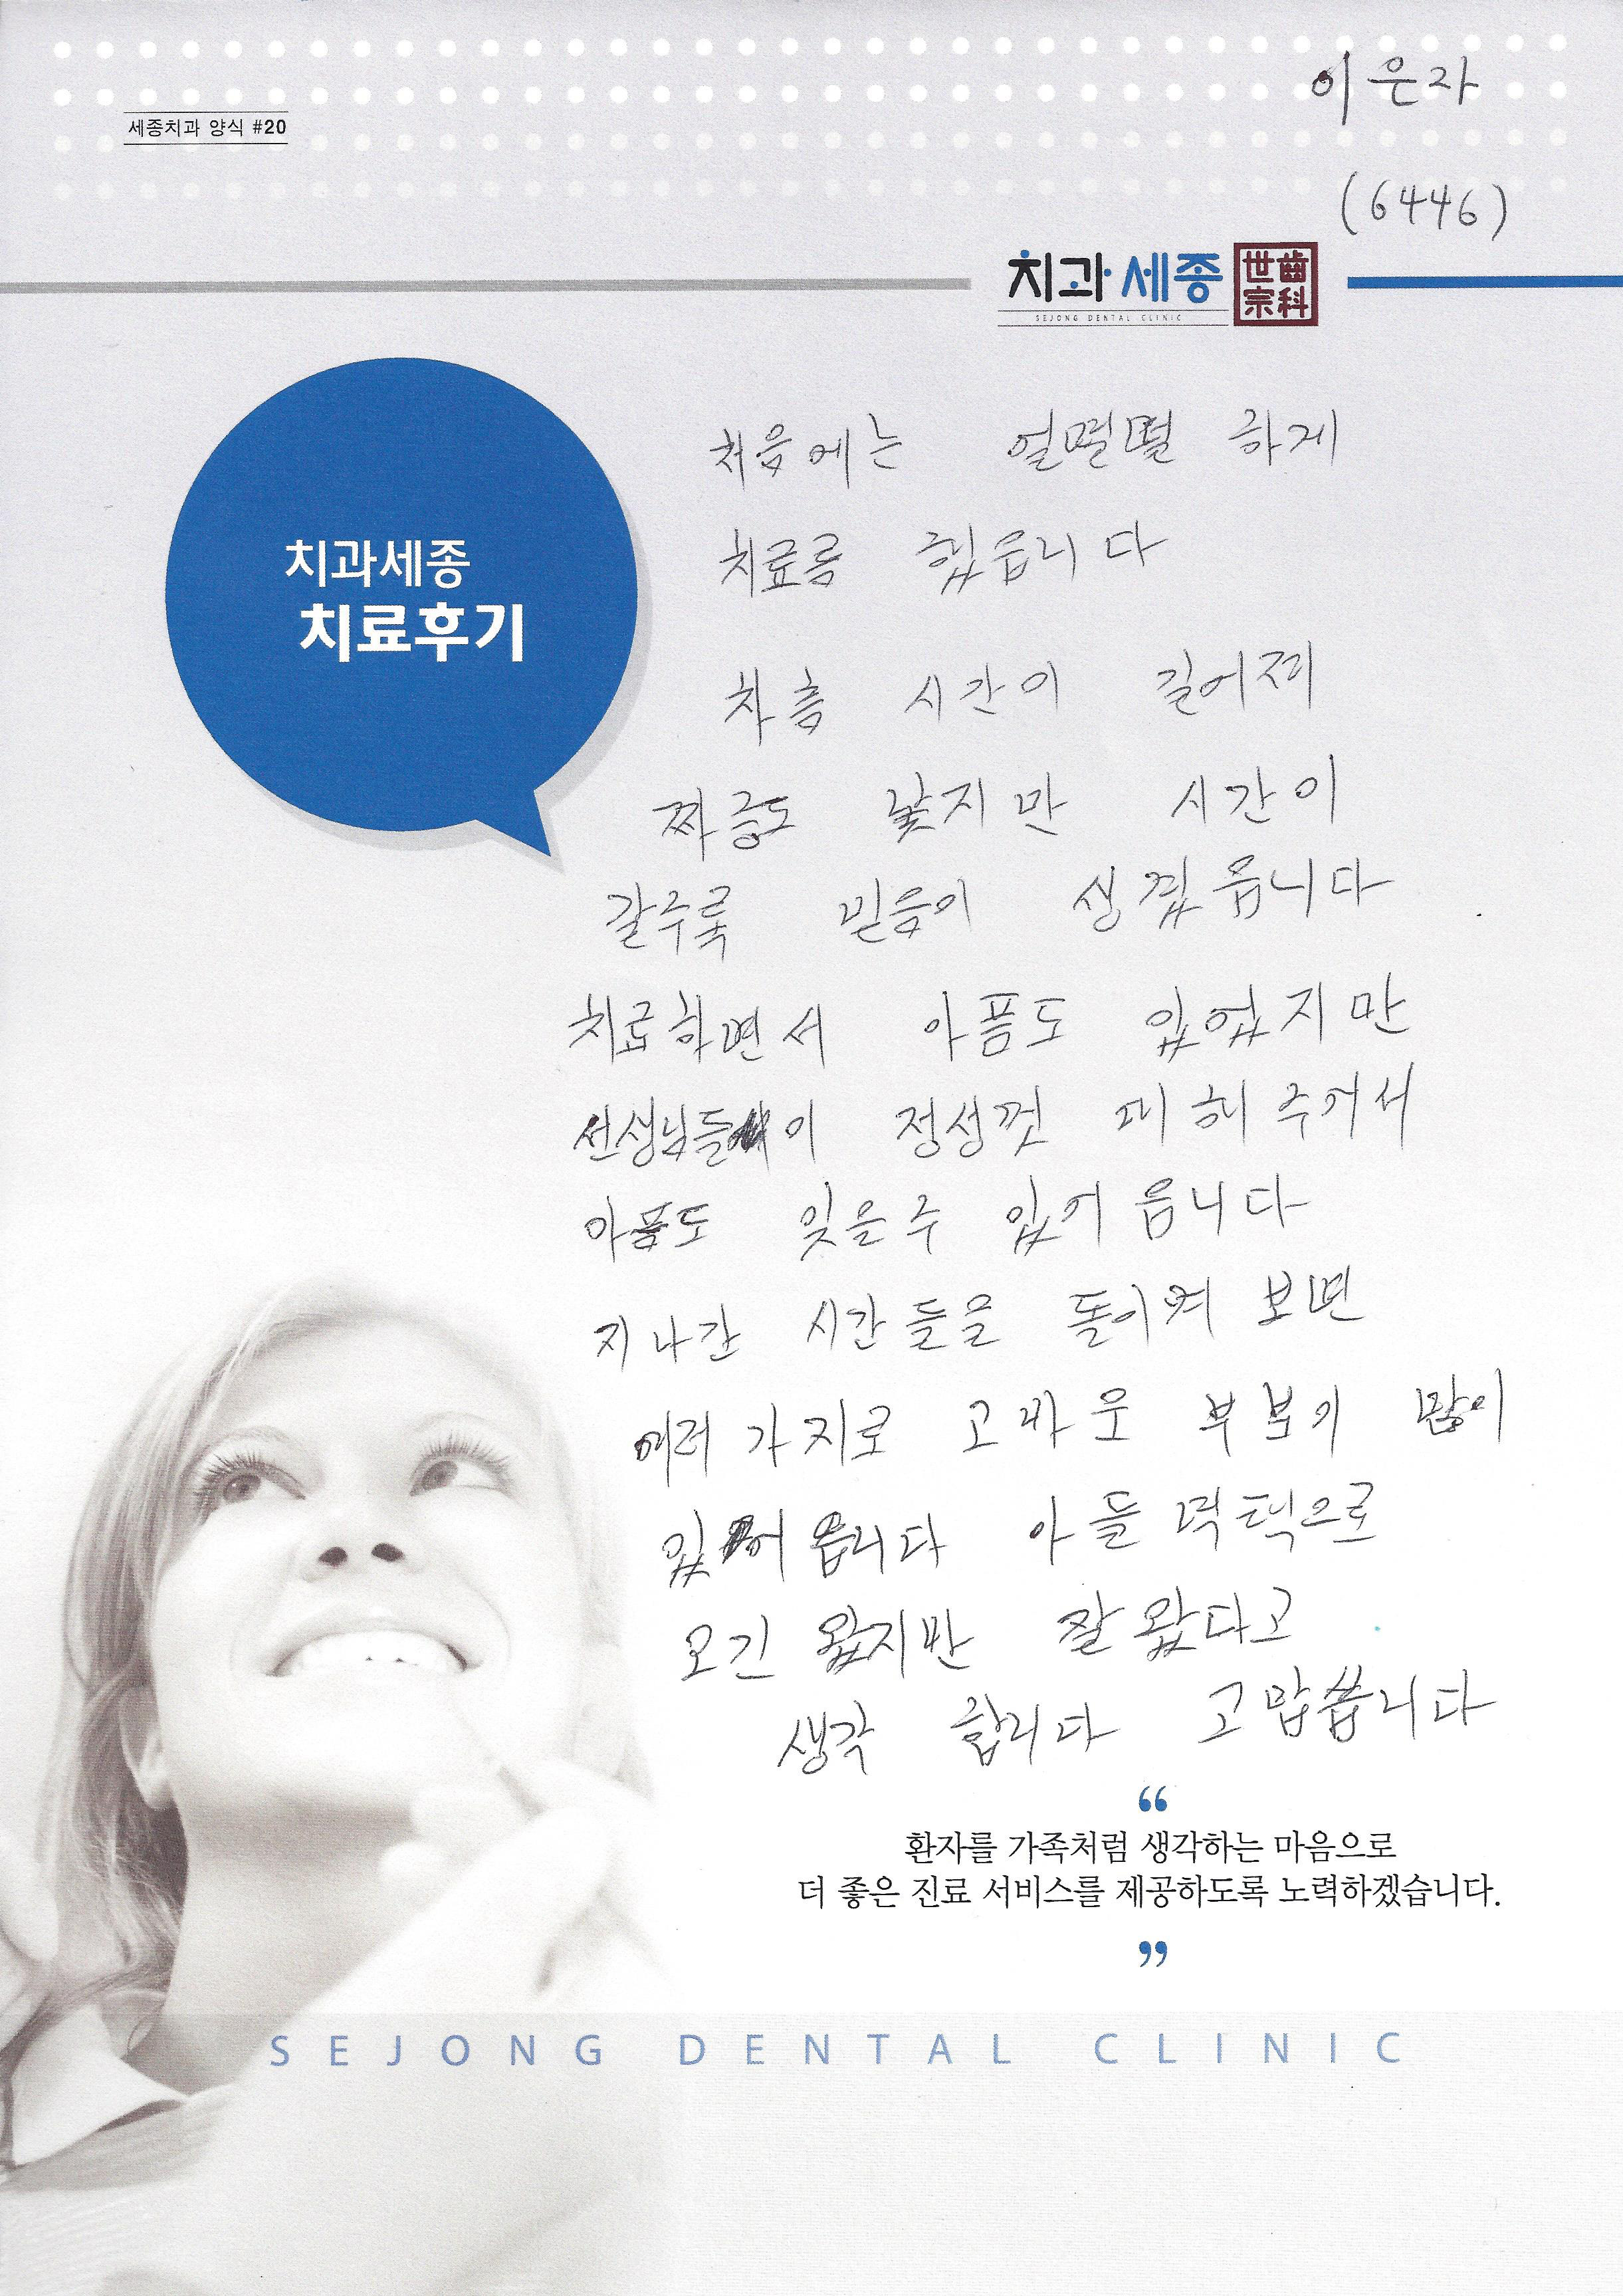 이은자
세종치과 양식 #20
(6446)
치과세종
世齒
宗科
SEJONG DENTAL CLINIC
치과세종
치료후기
처음에는 얼떨떨 하게
치료를 했읍니다
차츰 시간이 길어저
짜증도 낮지만 시간이
갈수룩 믿음이 생겼읍니다
치료하면서 아픔도 있었지만
선생님들이 정성껏 대해주어서
아픔도 잊을수 있어읍니다
지나간 시간들을 돌이켜 보면
여러가지로 고마운 부분이 많이
있어읍니다 아들 덕택으로
오긴 왔지만 잘왔다고
생각 합니다 고맙씁니다
“
환자를 가족처럼 생각하는 마음으로
더 좋은 진료 서비스를 제공하도록 노력하겠습니다.
”
SEJONG DENTAL CLINIC